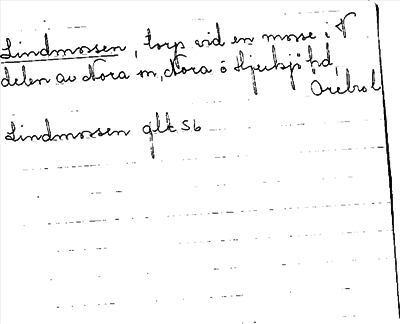 Lindmossen, torp vid en mosse i N
delen av Nora sn, Nora o Hjulsjö hd,
Örebro l
Lindmossen glt Sb